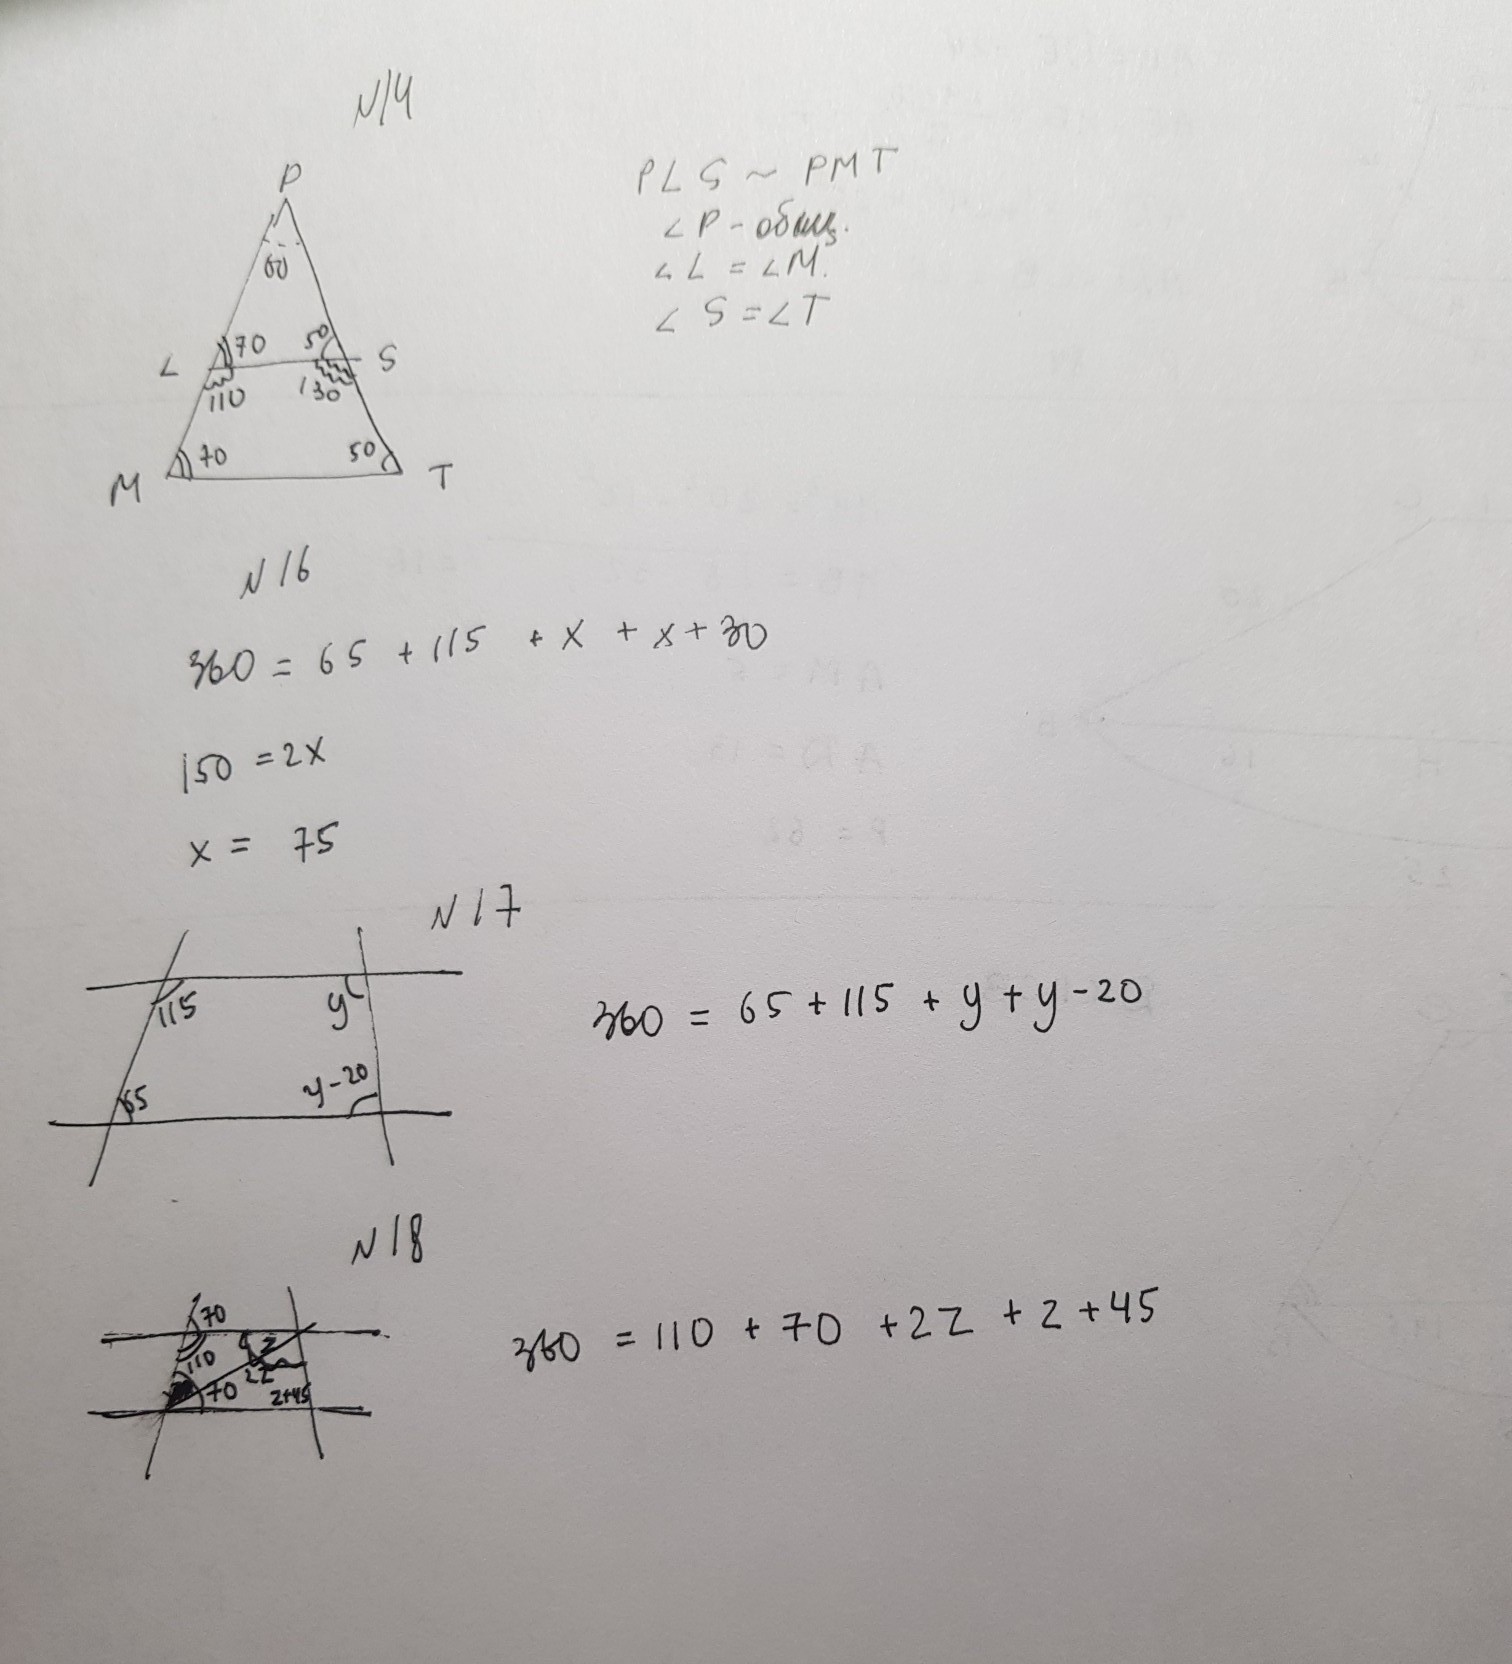 N14
P
60
L 70 50 S
110 130
M 70 50 T
PLS ~ PMT
∠P - общ.
∠L = ∠M.
∠S = ∠T
N16
360 = 65 + 115 + x + x + 30
150 = 2x
x = 75
N17
115 y
65 y-20
360 = 65 + 115 + y + y - 20
N18
70
110 z
2z
70 z+45
360 = 110 + 70 + 2z + z + 45